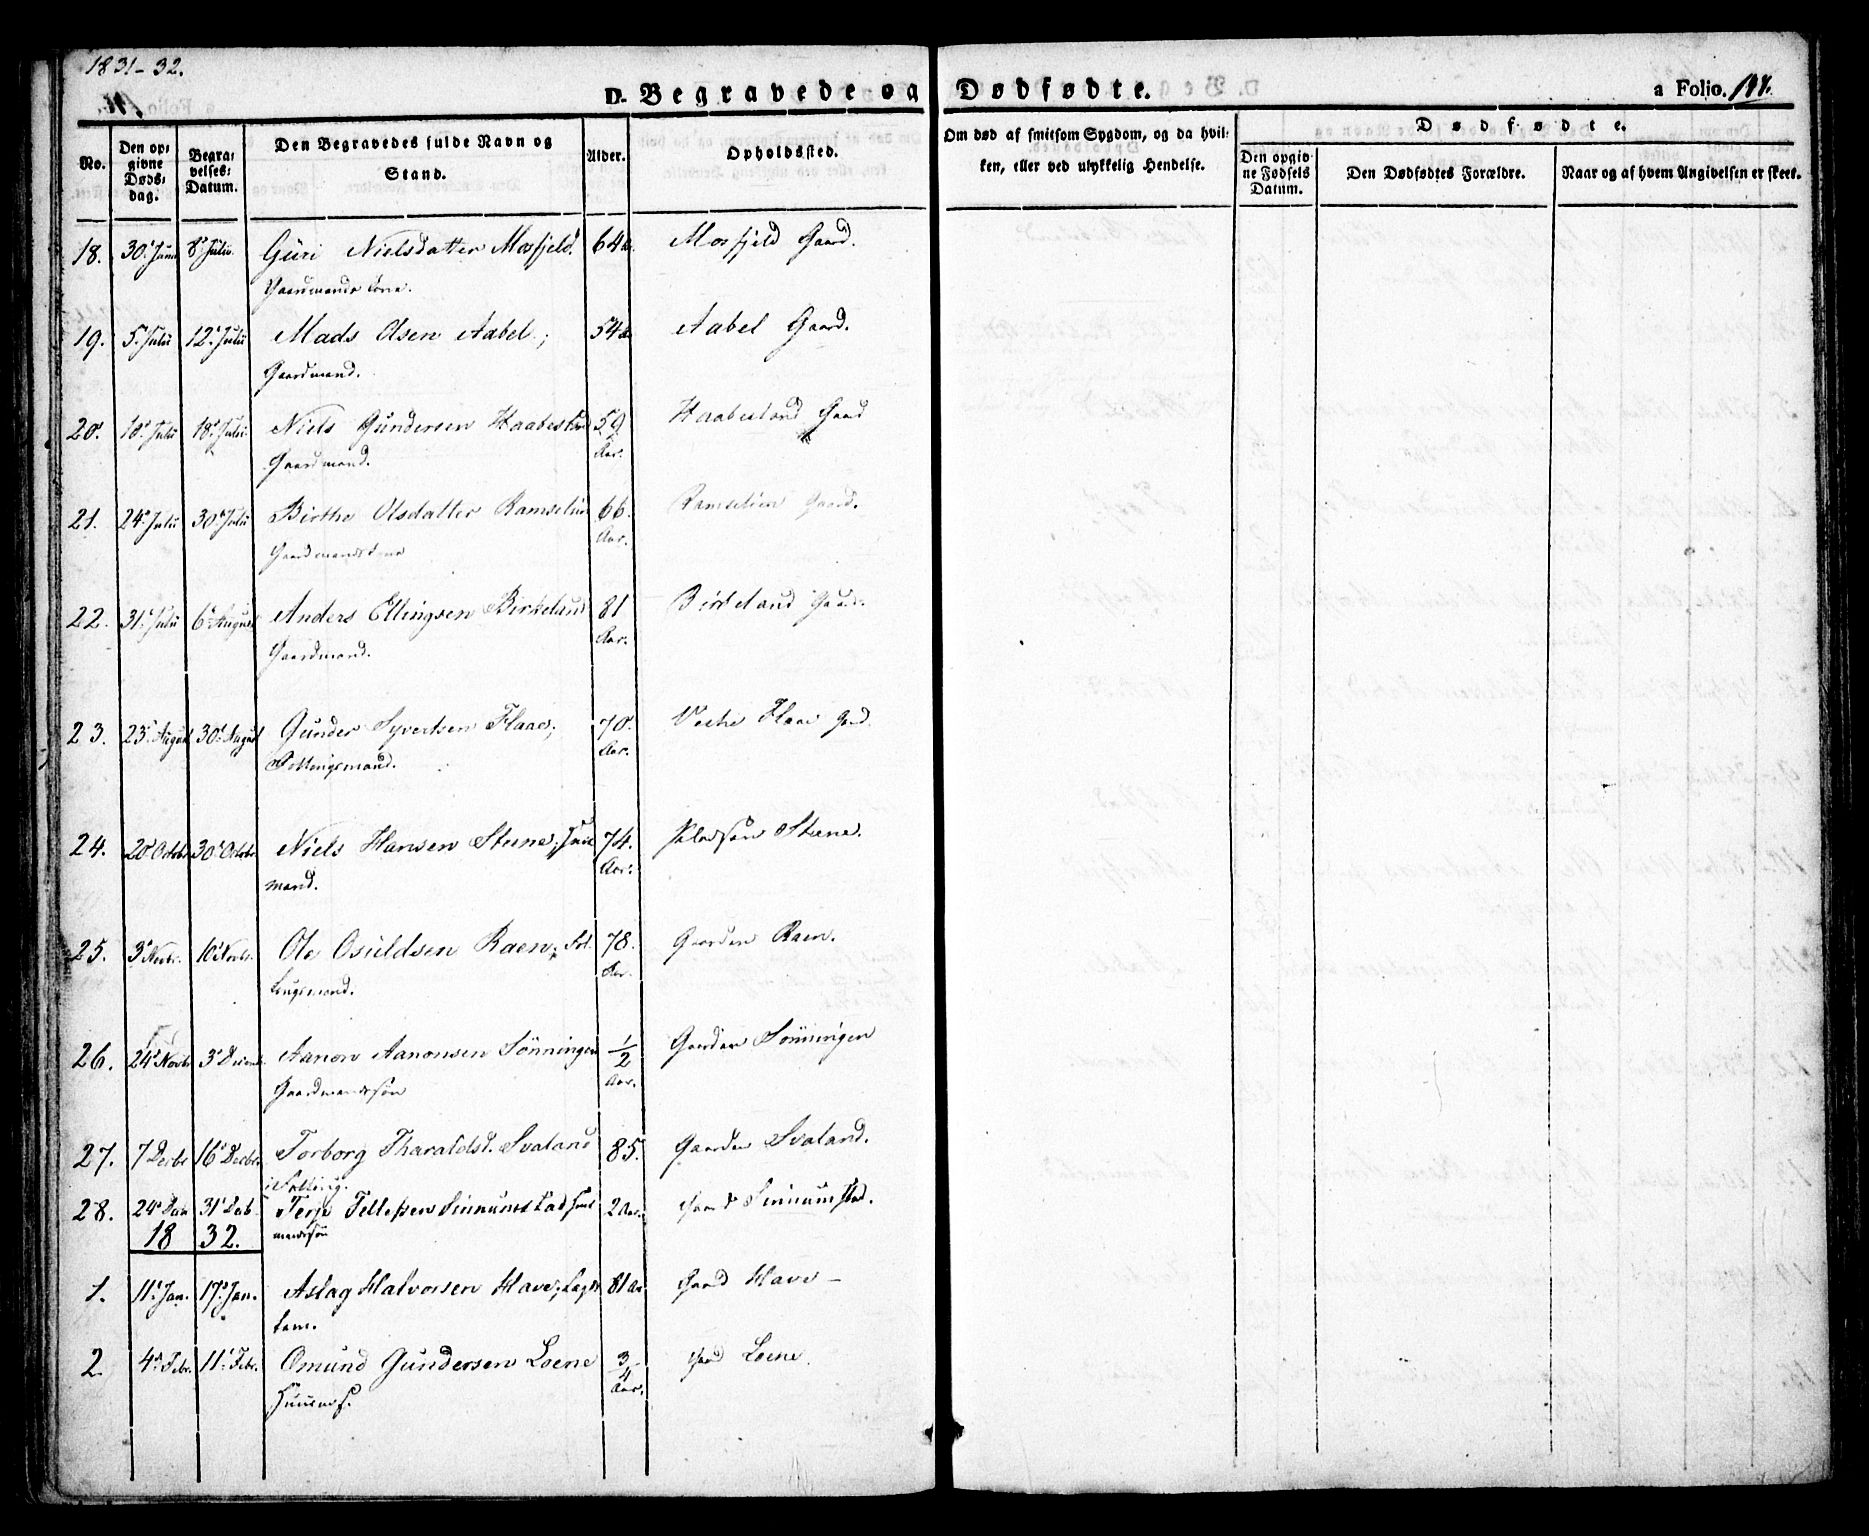 1831-32.
D. Begravede og Dødfødte.
a Folio.
No.
Den opgivne Døds-dag.
Begravelses-Datum.
Den Begravedes fulde Navn og Stand.
Alder.
Opholdssted.
Om død af smitsom Sygdom, og da hvilken, eller ved ulykkelig Hendelse.
Dødfødte.
Den opgivne Fødsels Datum.
Den Dødfødtes Forældre.
Naar og af hvem Angivelsen er skeet.
18. 30. Juni 8. Julii Guri Nielsdatter Mosfjeld. 64 Mosfjeld Gaard.
Gaardmands
19. 5. Julii 12. Julii Mads Olsen Aabel; 54 Aabel Gaard.
Gaardmand.
20. 10. Julii 18. Julii Niels Gundersen Haabestad 59 Aar. Haabestad Gaard
Gaardmand.
21. 24. Julii 30. Julii Birthe Olsdatter 66. Aar. Gaard.
22. 31. Julii 6. August Anders Ellingsen Birkeland 81 Aar. Birkeland Gaard.
Gaardmand.
23. 23. August 30. August Gunder Syvertsen Flaae; 70. Aar. Flaae Grd.
24. 20. Octobr 30. Octobr Niels Hansen Steene; Huus 74. Aar. Pladsen Steene.
mand.
25. 3. Novbr. 10. Novbr. Ole Osuldsen Raen; Fol- 78. Aar. Gaarden Raen.
lougsmand.
26. 24. Novbr 3. Aanon Aanonsen Sönningen 1/2 Aar. Gaarden Sönningen
Gaardmandssön
27. 7 Decbr 16. Decbr. Torborg Tharaldsd. Svaland 85. Gaarden Svaland.
28. 24. 31. Terje Tellefsen 2 Aar. Gaard
mandssön
1832.
1. 11. Jan. 17. Jan. Aslag Halvorsen Have; Lægds 81 Aar Gaard Have -
lem.
2. 4. Febr. 11. Febr. Omund Gundersen Loene 3/4 Aar. Gaard Loene.